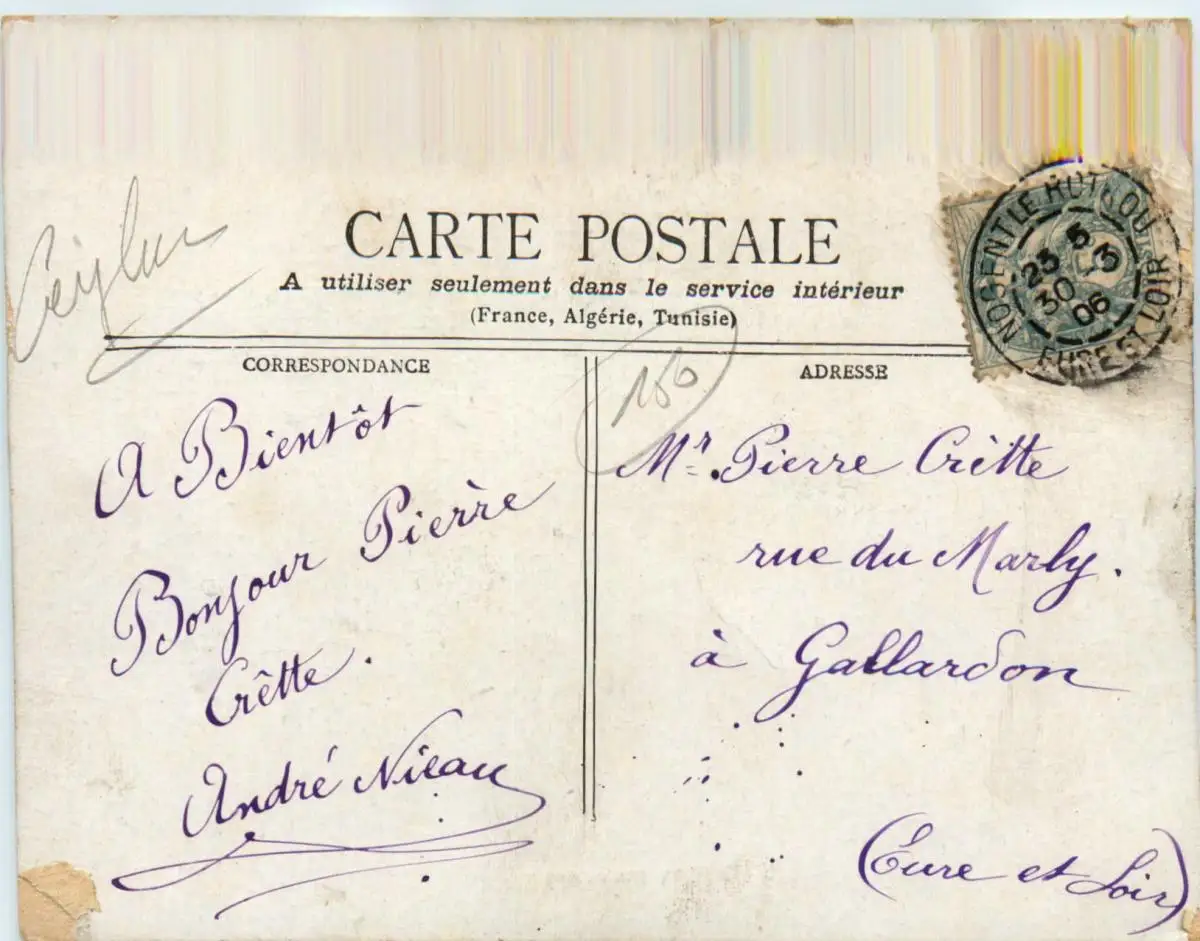 CARTE POSTALE
A utiliser seulement dans le service intérieur
(France, Algérie, Tunisie)
CORRESPONDANCE
A Bientôt
Bonjour Pierre
Crêtte.
André Nicau
150
ADRESSE
Mr. Pierre Crêtte
rue du Marly.
à Gallardon
(Eure et Loir)
NOGENT LE ROTROU
23 5
30
06
EURE ET LOIR